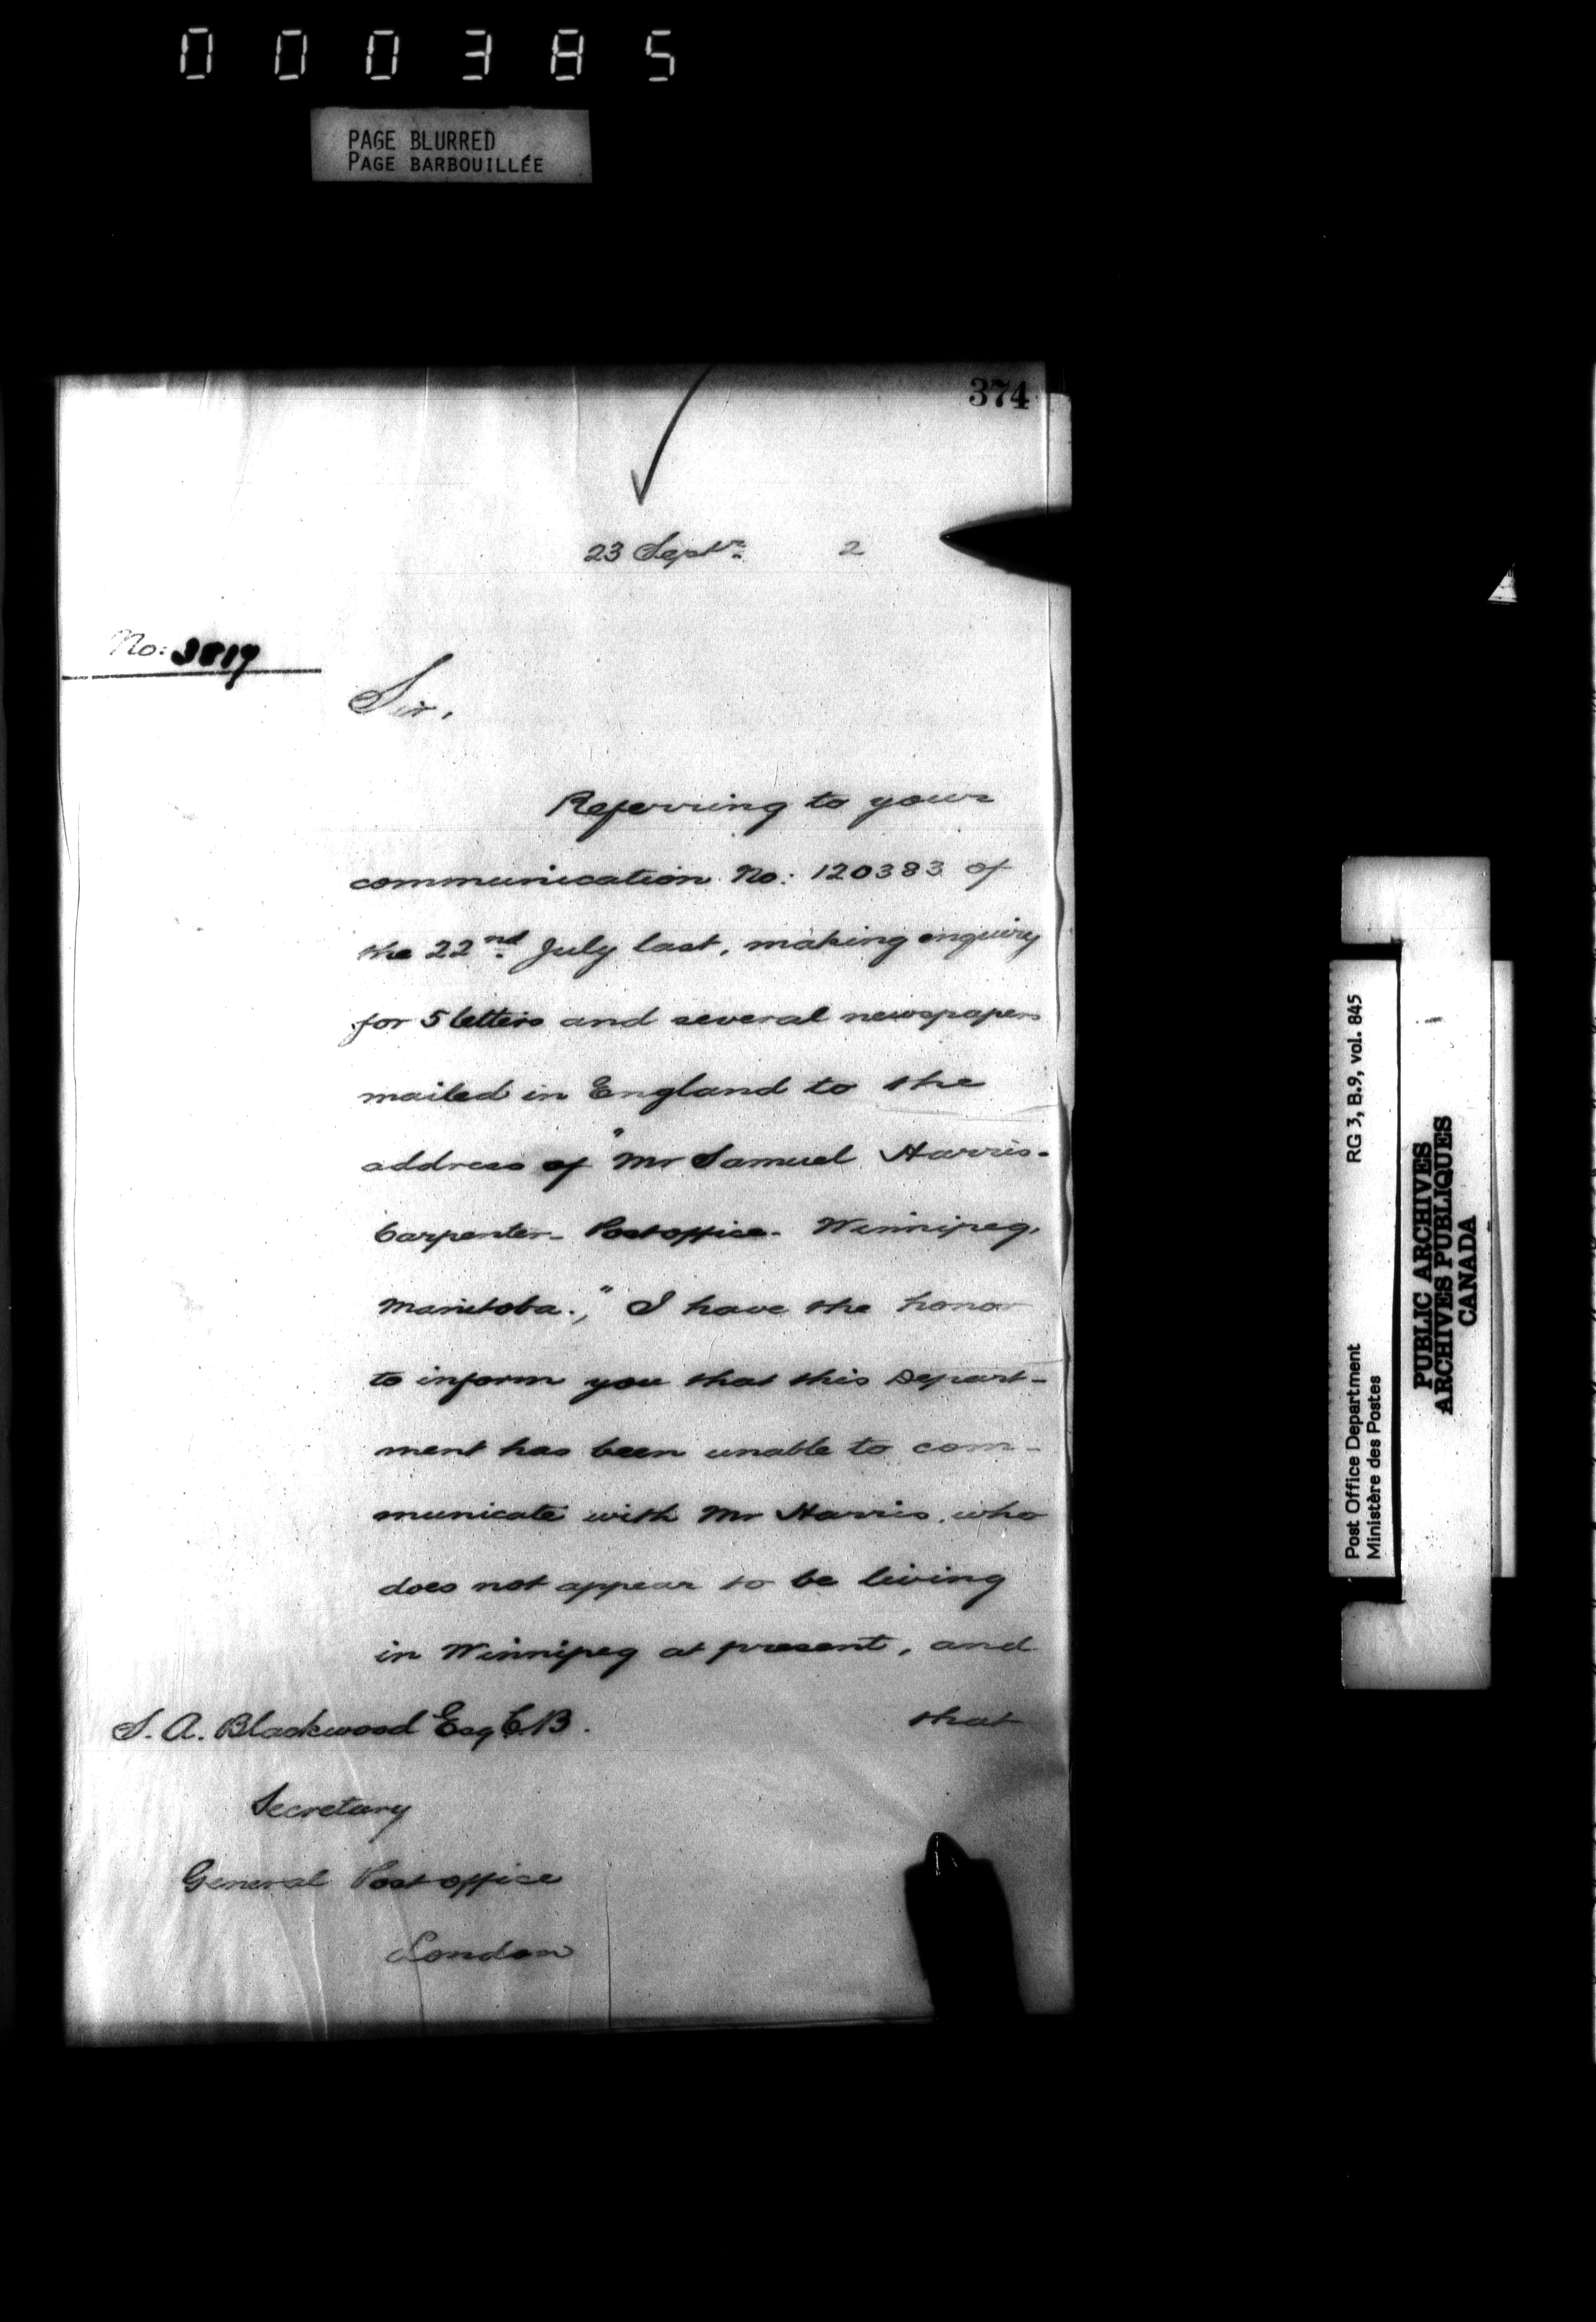 000385
PAGE BLURRED
PAGE BARBOUILLÉE
374
23 Septr. 2
No: 3819
Sir,
Referring to yours
communication No: 120383 of
the 22nd July last, making enquiry
for 5 letters and several newspapers
mailed in England to the
address of "Mr Samuel Harris-
Carpenter- Post office- Winnipeg,
Manitoba.," I have the honor
to inform you that this Depart-
ment has been unable to com-
municate with Mr Harris, who
does not appear to be living
in Winnipeg at present, and
that
S. A. Blackwood Esq C.B.
Secretary
General Post office
London
Post Office Department RG 3, B.9, vol. 845
Ministère des Postes
PUBLIC ARCHIVES
ARCHIVES PUBLIQUES
CANADA